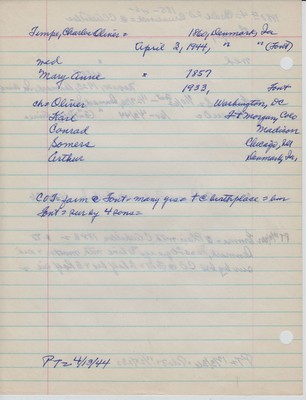 Tempe, Charles Oliver = 1860, Denmark, Ia
April 2, 1944, " " (Font)
med
"Mary Anne " 1857
" 1933, Font
ch = Oliver Washington, DC
Karl Ft Morgan, Colo
Conrad Madison
Somers Chicago, Ill
Arthur Denmark, Ia,
COT = farm @ Font = many yrs = t @ birthplace = bur
Font = sur by 4 sons =
PT = 4/13/44